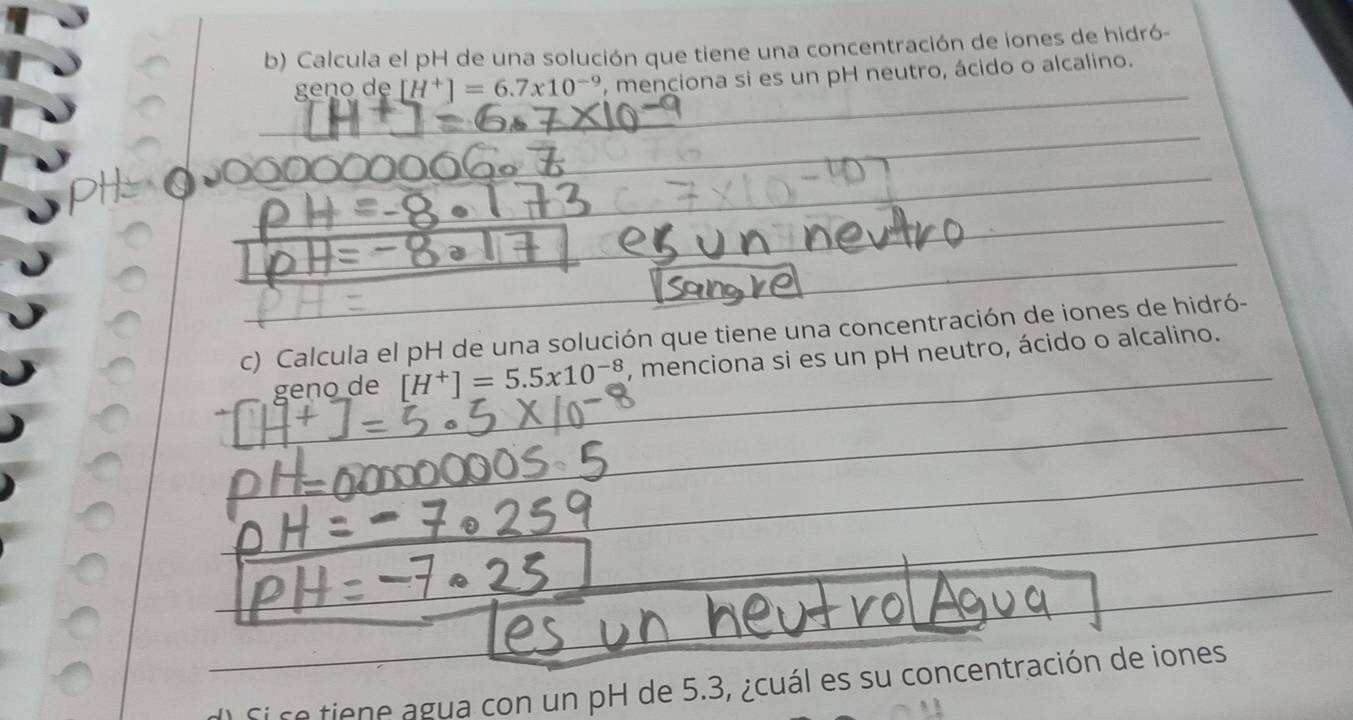 b) Calcula el pH de una solución que tiene una concentración de iones de hidró-
geno de [H⁺] = 6.7x10⁻⁹, menciona si es un pH neutro, ácido o alcalino.
[H⁺] = 6.7×10⁻⁹
pH=
pH = -8.173
pH = -8.17 es un neutro
sangre
pH =
c) Calcula el pH de una solución que tiene una concentración de iones de hidró-
geno de [H⁺] = 5.5x10⁻⁸, menciona si es un pH neutro, ácido o alcalino.
[H⁺] = 5.5 × 10⁻⁸
pH=
pH = -7.259
pH = -7.25
es un neutro Agua
d) Si se tiene agua con un pH de 5.3, ¿cuál es su concentración de iones